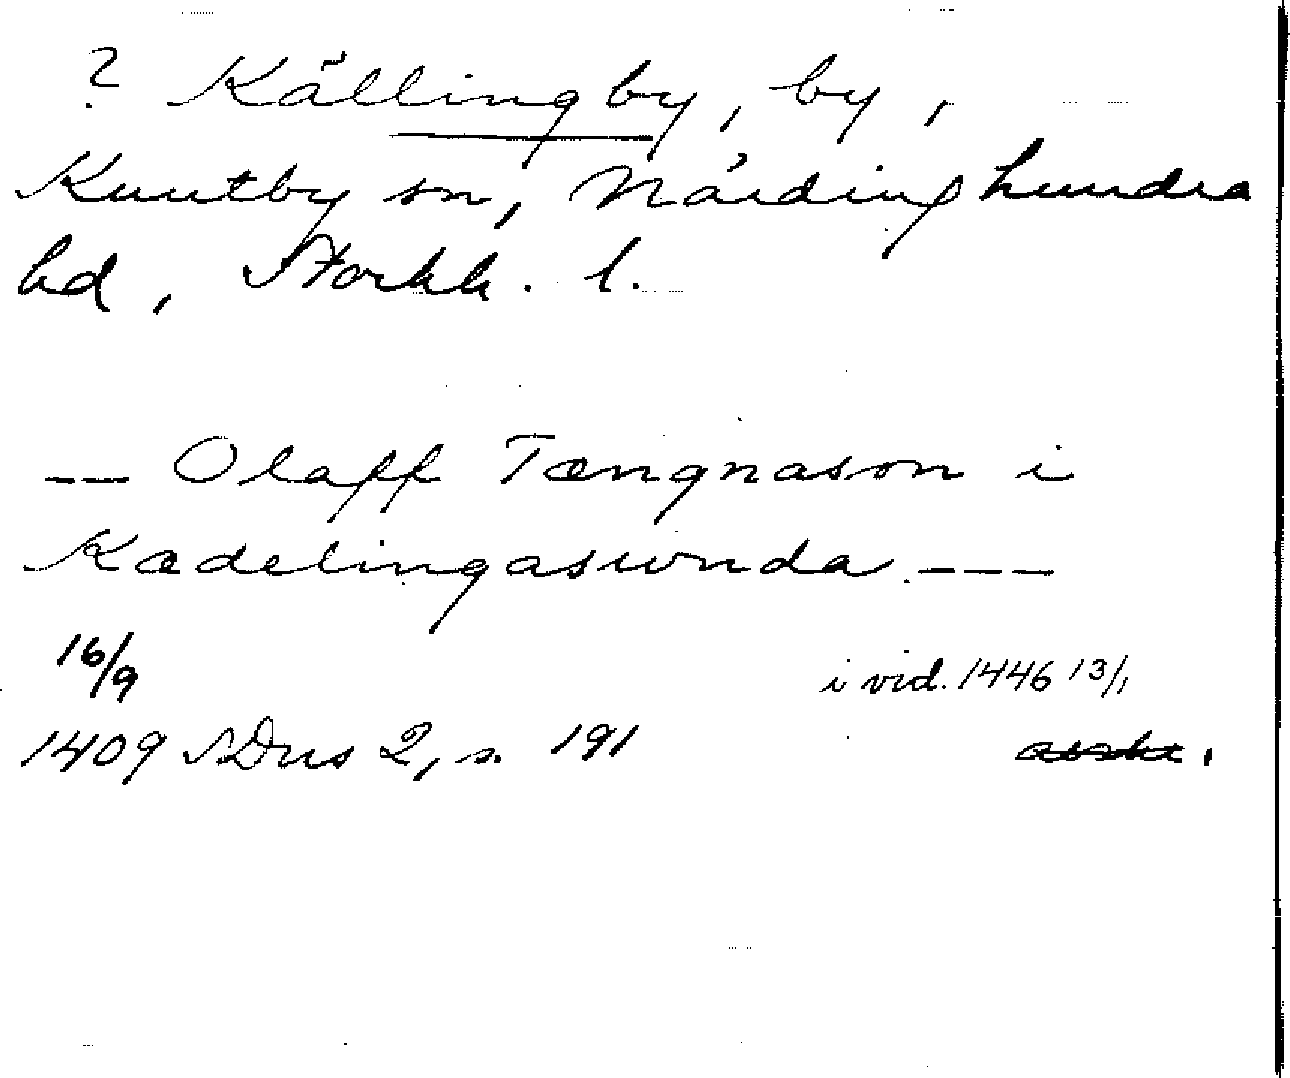 ? Källingby, by,
Knutby sn, Närdinghundra
hd, Stockh. l.
-- Olaff Tængnason i
Kædelingasunda ---
16/9 i vid. 1446 13/1
1409 SDns 2, s. 191 avskr.